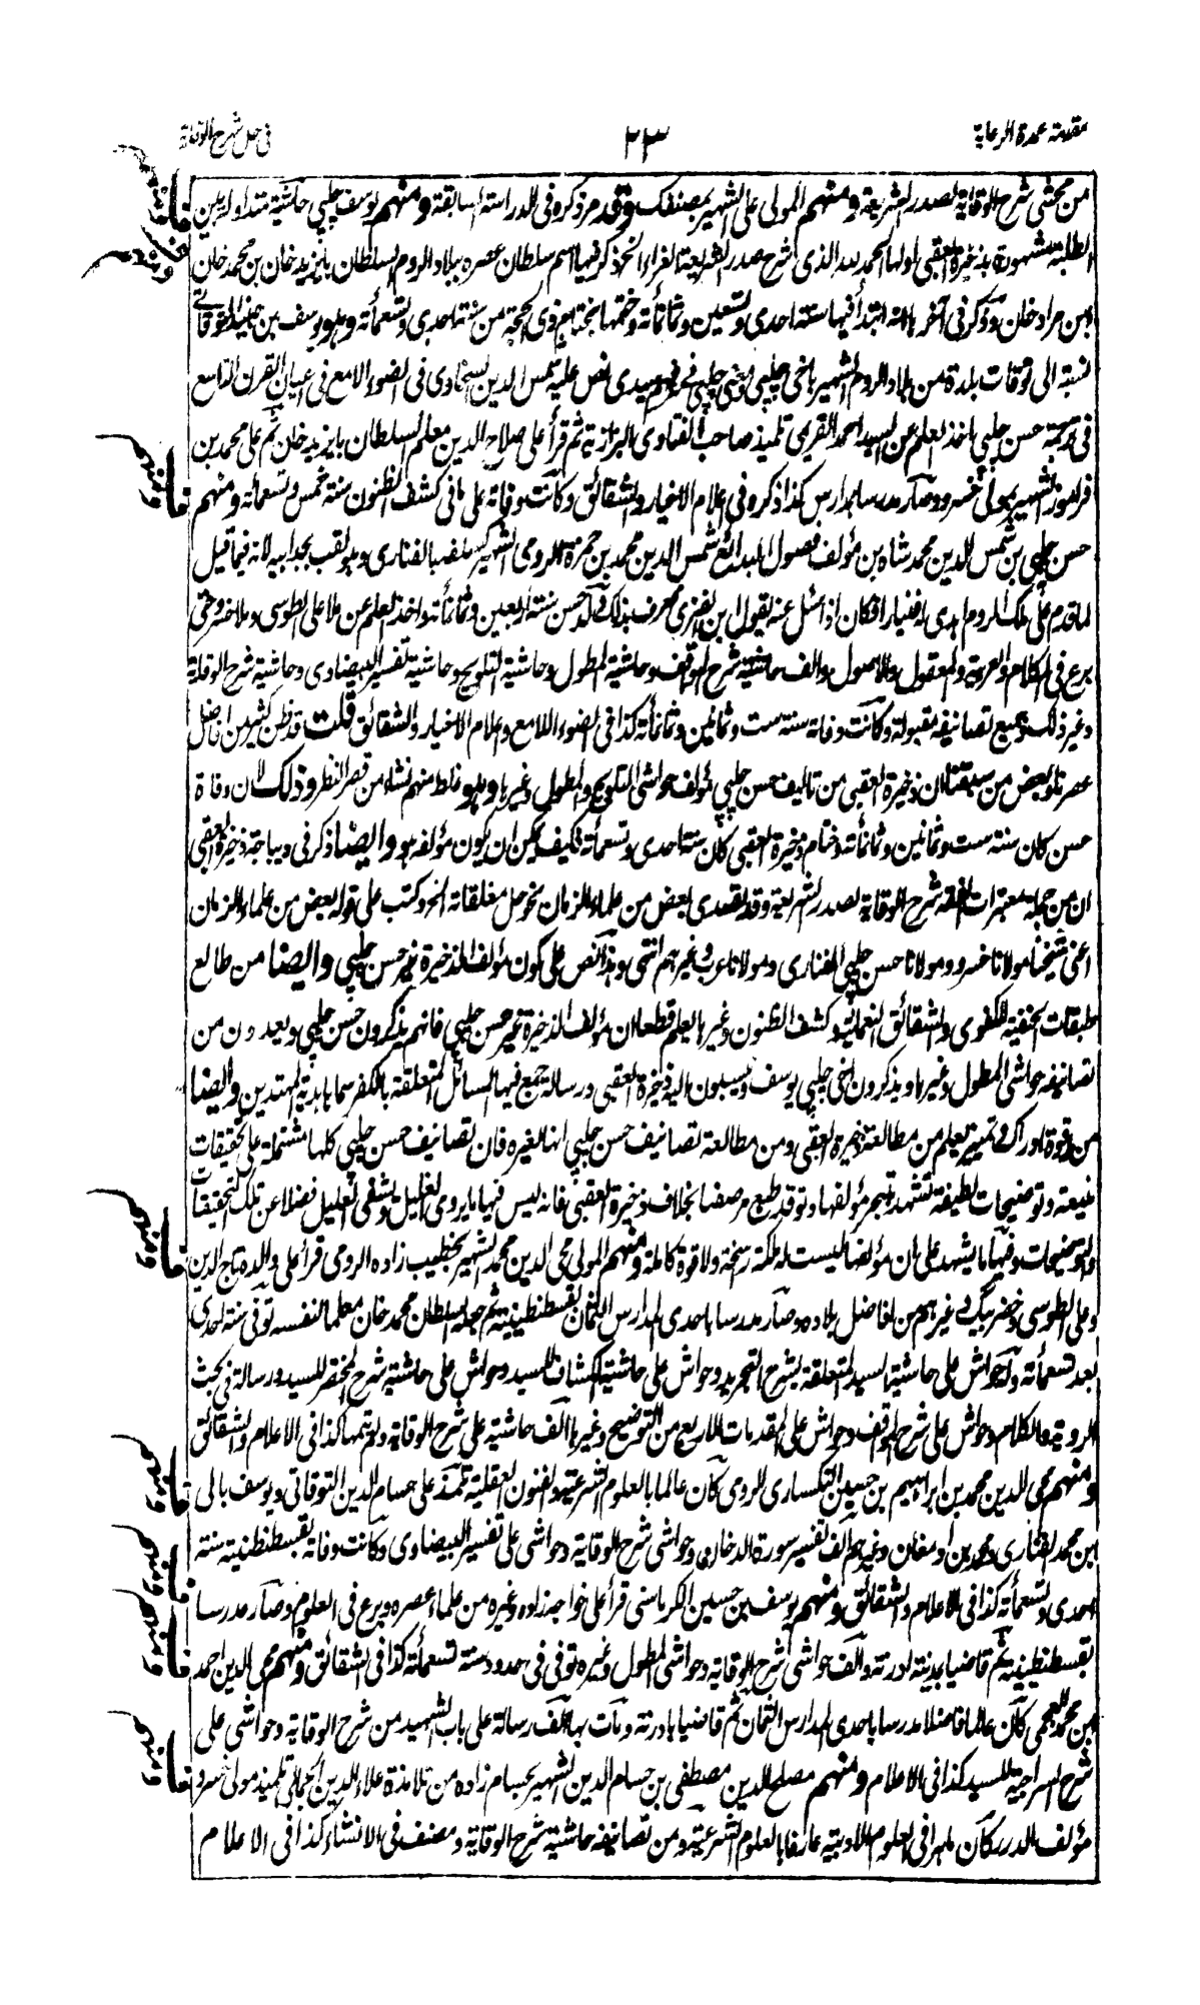 مقدمة عمدة الرعاية
٢٣
فى حل شرح الوقاية
من محشى شرح الوقاية لصدر الشريعة ومنهم المولى على الشهير بمصنفك وقد مر ذكره فى الدراسة السابقة ومنهم يوسف چلپي حاشية متداولة بين
الطلبة مشهورة بذخيرة العقبى اولها الحمد لله الذى شرح صدر الشريعة الغراء الخ ذكر فيها اسم سلطان عصره ببلاد الروم السلطان بايزيد خان بن محمد خان
ابن مراد خان وذكر فى آخره انه ابتدأ فيها سنة احدى وتسعين وثمانمأته وختمها بختام ذى الحجة من سنة احدى وتسعمأته وهو يوسف بن جنيد التوقاتى
نسبته الى توقات بلدة من بلاد الروم الشهير باخى چلپي نص عليه شمس الدين السخاوى فى الضوء اللامع فى اعيان القرن التاسع
فى ترجمة حسن چلپي اخذ العلم عن السيد احمد القريمى تلميذ صاحب الفتاوى البزازية ثم قرأ على صلاح الدين معلم السلطان بايزيد خان ثم على محمد بن
فراموز الشهير بمولى خسرو وصار مدرسا بمدارس كذا ذكره فى اعلام الاخيار والشقائق وكانت وفاته على ما فى كشف الظنون سنة خمس وتسعمائة ومنهم
حسن چلپي بن شمس الدين محمد شاه بن مؤلف فصول البدائع شمس الدين محمد بن حمزة الرومى الشهير كسلفه بالفنارى وهو لقب بجد ابيه لانه فيما قيل
لما قدم على ملك الروم اهدى له فنيارا فكان اذا سئل عنه يقول اين الفنرى فعرف بذلك ولد حسن سنة اربعين وثمانمأته واخذ العلم عن ملا على الطوسى وملا خسرو حتى
برع فى الكلام والعربية والمعقول والاصول والف حاشية شرح المواقف وحاشية المطول وحاشية التلويح وحاشية تفسير البيضاوى وحاشية شرح الوقاية
وغير ذلك وجميع تصانيفه مقبولة وكانت وفاته سنة ست وثمانين وثمانمأته كذا فى الضوء اللامع واعلام الاخيار والشقائق قلت قد ظن كثير من افاضل
عصرنا وبعض من سبقنا ان ذخيرة العقبى من تاليف حسن چلپي مؤلف حواشى التلويح والمطول وغيرها وهو غلط منهم نشأ من قصر النظر وذلك لان وفاة
حسن كان سنة ست وثمانين وثمانمأته وختام ذخيرة العقبى كان سنة احدى وتسعمأته فكيف يمكن ان يكون مؤلفه هو وايضا ذكر فى ديباجة ذخيرة العقبى
ان من جملة معتبرات الفقه شرح الوقاية لصدر الشريعة وقد تصدى بعض من علماء الزمان نحو حل مغلقاته الخ وكتب على قوله بعض من علماء الزمان
اعنى شيخنا مولانا خسرو ومولانا حسن چلپي الفنارى ومولانا عرب وغيرهم انتهى وهذا نص على كون مؤلف الذخيرة غير حسن چلپي وايضا من طالع
طبقات الحنفية للكفوى والشقائق النعمانية وكشف الظنون وغيرها يعلم قطعا ان مؤلف الذخيرة غير حسن چلپي فانهم يذكرون حسن چلپي ويعدون من
تصانيفه حواشى المطول وغيرها ويذكرون اخى چلپي يوسف وينسبون اليه ذخيرة العقبى ورسالة جمع فيها المسائل المتعلقة بالكفر سماها هدية المهتدين وايضا
من له قوة ادراك وتمييز يعلم من مطالعة ذخيرة العقبى ومن مطالعة تصانيف حسن چلپي انها لغيره فان تصانيف حسن چلپي كلها مشتملة على تحقيقات
منيعة وتوضيحات لطيفة تشهد بتبحر مؤلفها وتوقد طبع مرصفها بخلاف ذخيرة العقبى فانه ليس فيها ما يروى الغليل ويشفى العليل فضلا عن تلك التحقيقات
والتوضيحات وفيها ما يشهد على ان مؤلفها ليست له ملكة راسخة ولا قوة كاملة ومنهم المولى محى الدين محمد الشهير بخطيب زاده الرومى قرأ على والده تاج الدين
وعلى الطوسى وخضر بيگ وغيرهم من افاضل بلاده وصار مدرسا باحدى المدارس الثمان بقسطنطينية ثم جعله السلطان محمد خان معلما لنفسه توفى سنة احدى
بعد تسعمأته وله حواش على حاشية السيد المتعلقة بشرح التجريد وحواش على حاشية الكشاف للسيد وحواش على حاشية شرح المختصر للسيد ورسالة فى بحث
الروية والكلام وحواش على شرح المواقف وحواش على المقدمات الاربع من التوضيح وغيرها الف حاشية على شرح الوقاية ولم يتمها كذا فى الاعلام والشقائق
ومنهم محى الدين محمد بن ابراهيم بن حسين النكسارى الرومى كان عالما بالعلوم الشرعية والفنون العقلية تلمذ على حسام الدين التوقاتى ويوسف بالى
ابن محمد الفنارى ومحمد بن ارمغان وغيرهم الف تفسير سورة الدخان وحواشى شرح الوقاية وحواشى على تفسير البيضاوى وكانت وفاته بقسطنطنية سنة
احدى وتسعمأته كذا فى الاعلام والشقائق ومنهم يوسف بن حسين الكرماسنى قرأ على خواجه زاده وغيره من علماء عصره وبرع فى العلوم وصار مدرسا
بقسطنطينية ثم قاضيا بمدينة ادرنة والف حواشى شرح الوقاية وحواشى المطول وغيره توفى فى حدود سنة تسعمأته كذا فى الشقائق ومنهم محى الدين احمد
ابن محمد العجمى كان عالما فاضلا مدرسا باحدى المدارس الثمان ثم قاضيا بادرنة ومات بها الف رسالة على باب الشهيد من شرح الوقاية وحواشى على
شرح السراجية للسيد كذا فى الاعلام ومنهم مصلح الدين مصطفى بن حسام الدين الشهير بحسام زاده من تلامذة علاء الدين الجمالى تلميذ مولى خسرو
مؤلف الدرر كان ماهرا فى العلوم الادبية عارفا بالعلوم الشرعية ومن تصانيفه حاشية شرح الوقاية ومصنف فى الانشاء كذا فى الاعلام